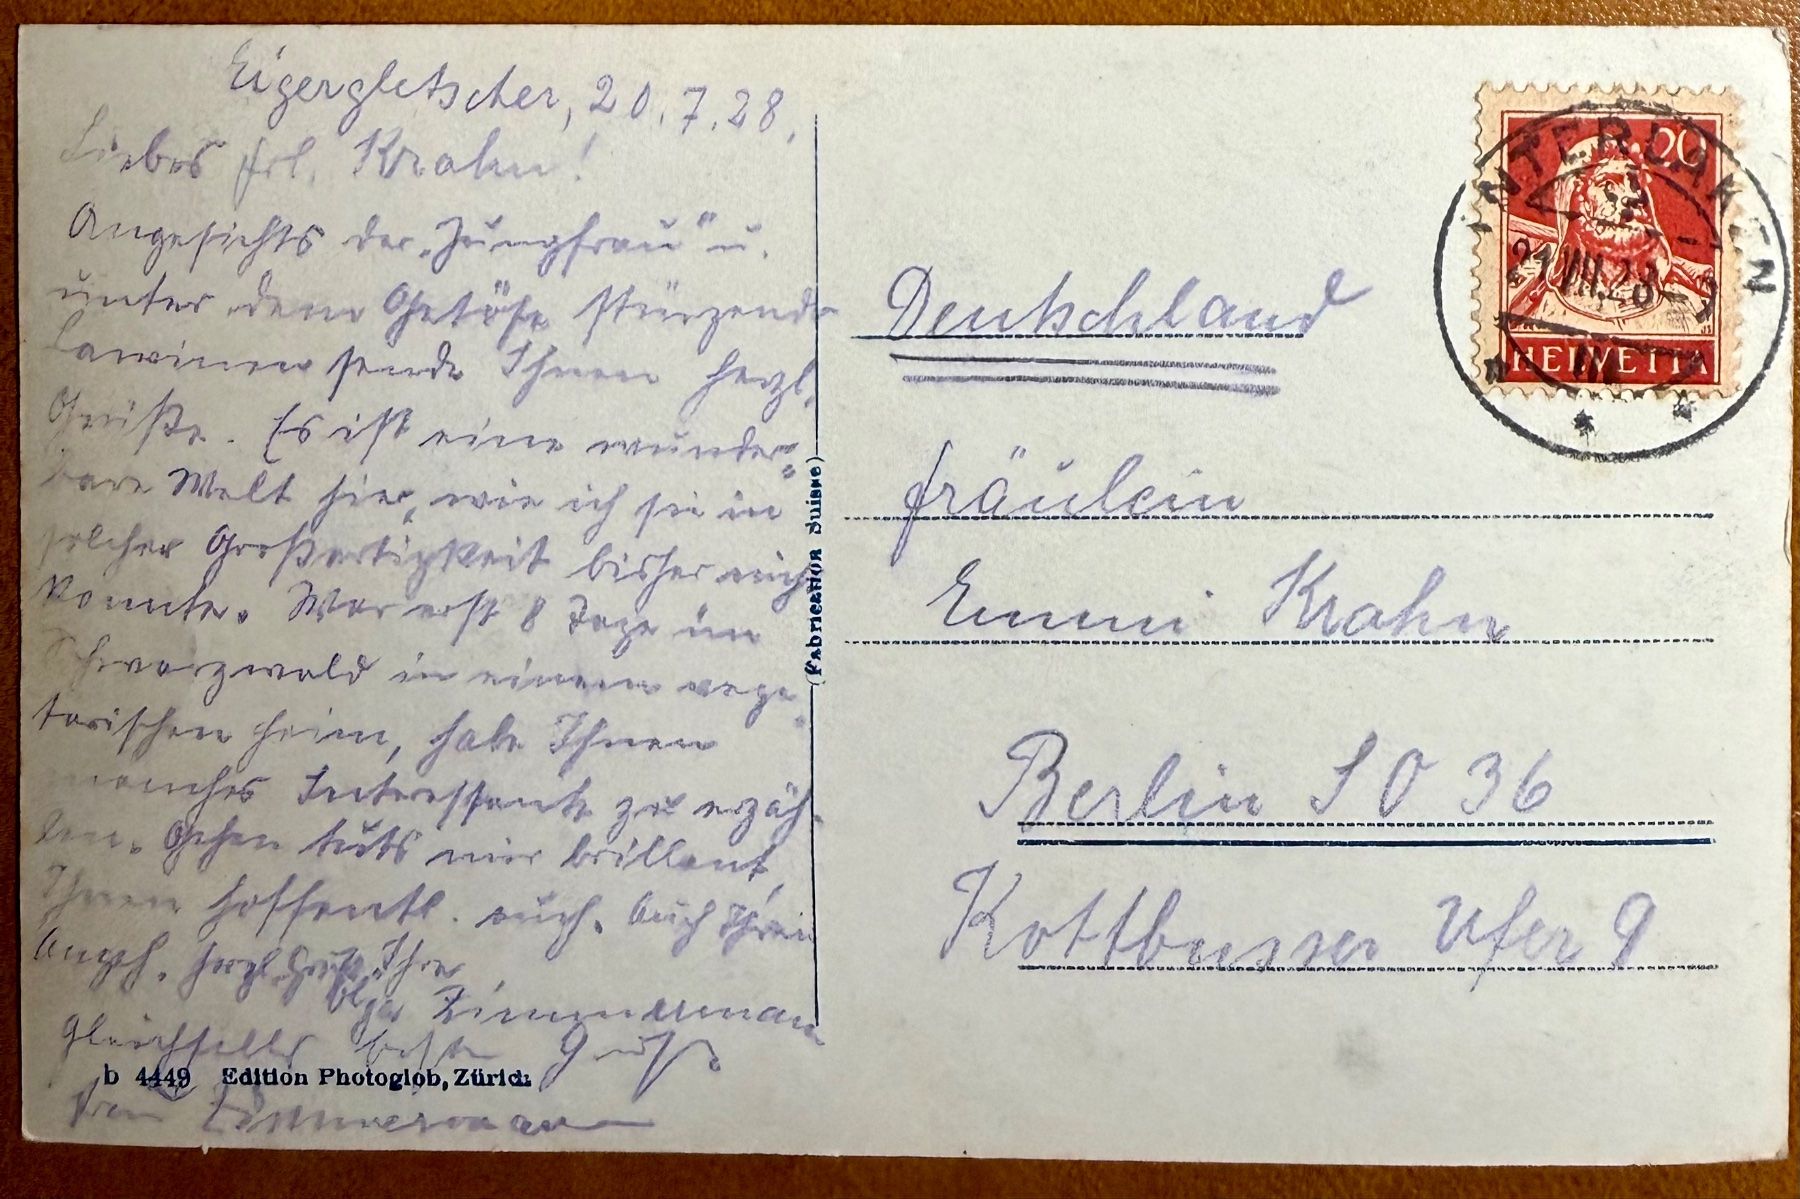 Eigergletscher, 20.7.28.
Liebes Frl. Krahn!
Angesichts der „Jungfrau" u.
unter dem Getöse stürzender
Lawinen sende Ihnen herzl.
Grüße. Es ist eine wunder-
bare Welt hier, wie ich sie in
solcher Großartigkeit bisher nicht
kannte. War erst 8 Tage im
Schwarzwald in einem vege-
tarischen Heim, habe Ihnen
manches Interessante zu erzäh-
len. Gehen tuts mir brillant,
Ihnen hoffentl. auch. Auch Ihren
Angeh. herzl. Grüße Ihre
Zimmermann
Gleichfalls beste Grüße
Frau Zimmermann
b 4449 Edition Photoglob, Zürich.
(Fabrication Suisse)
Deutschland
Fräulein
Emmi Krahn
Berlin SO 36
Kottbusser Ufer 9
20
HELVETIA
INTERLAKEN
21.VII.28